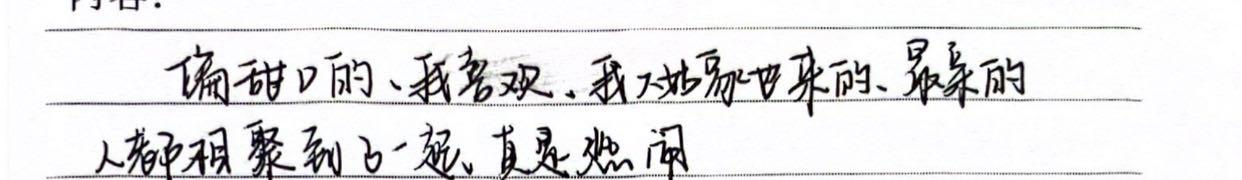 内容:
偏甜口的、我喜欢、我大姑家也来的、最亲的
人都相聚到了一起、真是热闹